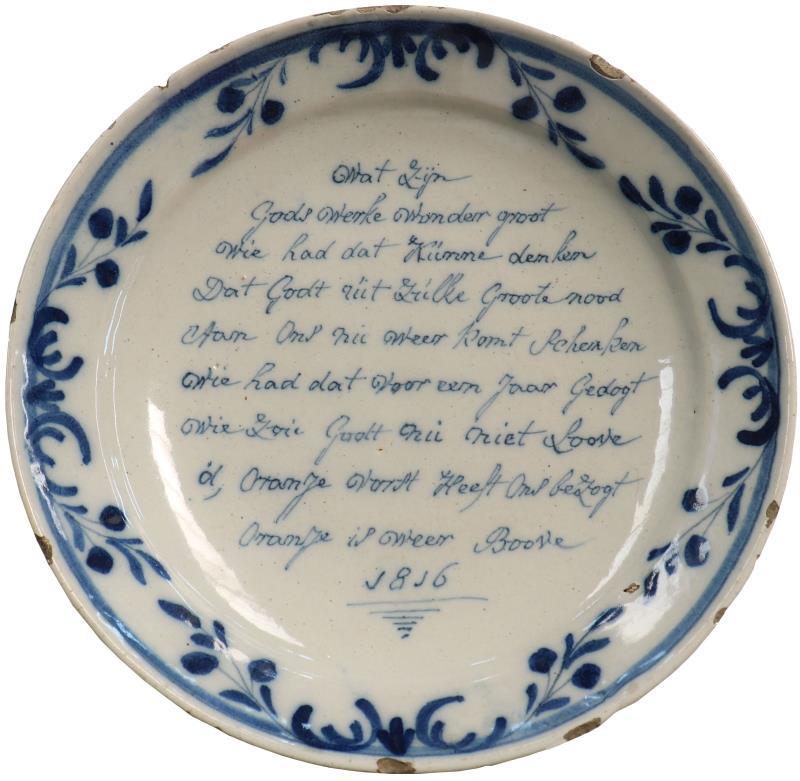 Wat Zijn
Gods Werke Wonder groot
Wie had dat Künne denken
Dat Godt üit Zülke Groote nood
Aan Ons nü weer komt Schenken
Wie had dat Voor een Jaar Gedogt
Wie Zoü Godt nü niet Loove
d, Oranje Vorst Heeft Ons bezogt
Oranje is weer Boove
1816